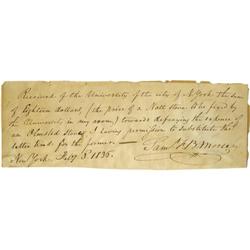 Received of the University of the city of N. York the sum
of Eighteen dollars, (the price of a Nott Stove to be paid by
the University in my room,) towards defraying the expense of
an Olmsted Stove, I having permission to substitute the
latter kind for the former. —
Saml. F. B. Morse
New York Feby 5th 1836.